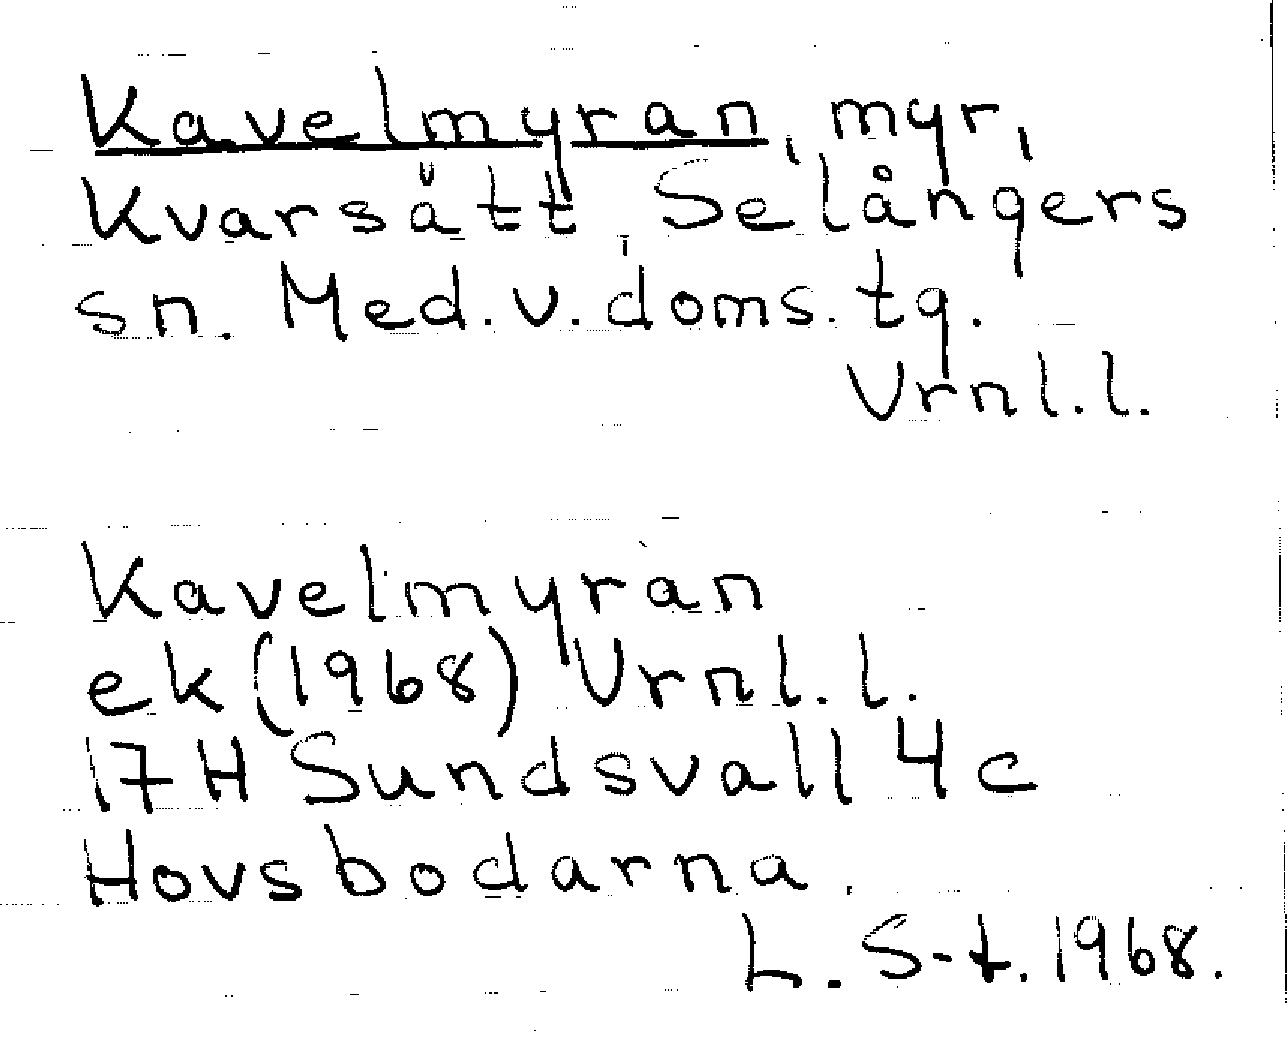 Kavelmyran, myr,
Kvarsätt, Selångers
sn. Med. v. doms. tg.
Vrnl. l.
Kavelmyran
ek (1968) Vrnl. l.
17H Sundsvall 4c
Hovsbodarna.
L. S-t. 1968.